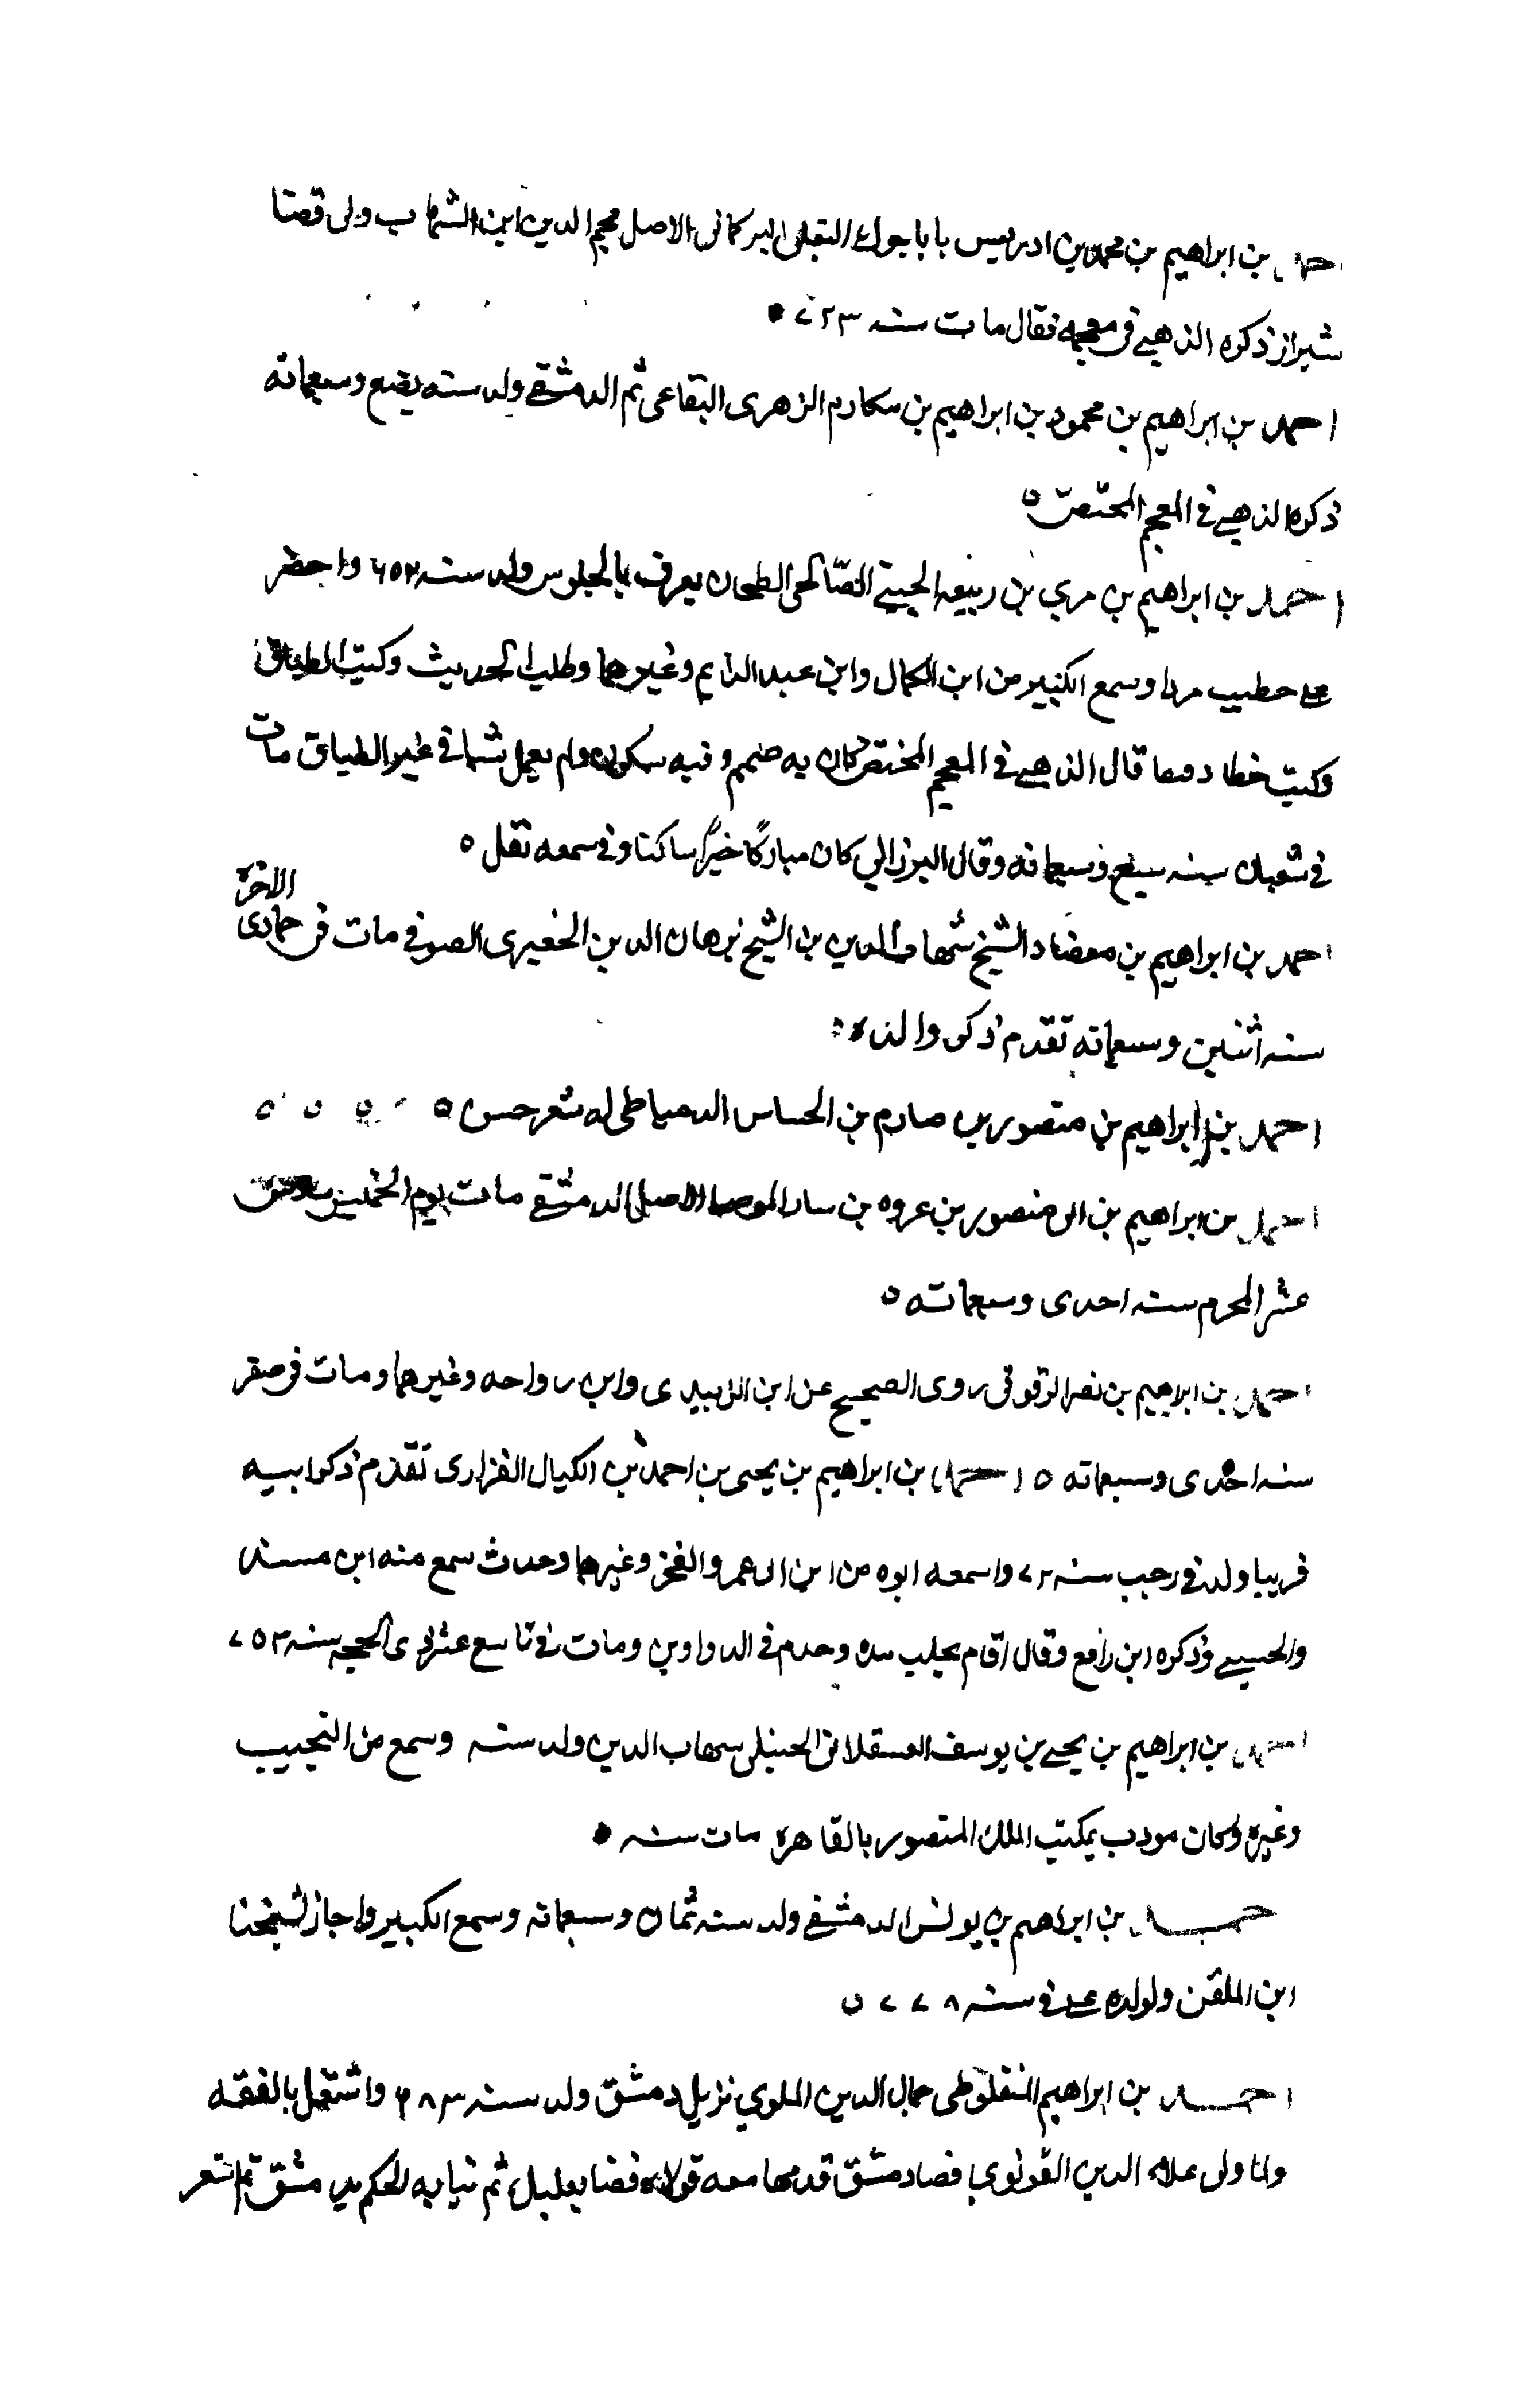 احمد بن ابراهيم بن محمد بن ادريس بابا جوك البعلى التركمانى الاصل نجم الدين ابن الشهاب ولى قضا
شيراز ذكره الذهبى فى معجمه فقال مات سنه ٧٢٣
احمد بن ابراهيم بن محمود بن ابراهيم بن مكارم الزهرى البقاعى ثم الدمشقى ولد سنه بضع وسبعمائه
ذكره الذهبى فى المعجم المختص ٥
احمد بن ابراهيم بن مري بن ربيعه الصالحى الطحان يعرف بالجلوس ولد سنه ٦٥٢ واحضر
على خطيب مردا وسمع الكثير من ابن الكمال وابن عبد الدايم وغيرهما وطلب الحديث وكتب الطباق
وكتب خطا قال الذهبى فى المعجم المختص كان به صمم وفيه سكون ولم يعمل شيا فى غير الطباق مات
فى شعبان سنه سبع وسبعمائه وقال البرزالي كان مباركا خيرا ساكنا وفى سمعه ثقل ٥
احمد بن ابراهيم بن معضاد الشيخ شهاب الدين بن الشيخ برهان الدين الجعبرى الصوفى مات فى جمادى الاخره
سنه اثنين وسبعمائه تقدم ذكر والده
احمد بن ابراهيم بن منصور بن صارم بن الحساس الدمياطى له شعر حسن ٥ ٥ ٥ ٥
احمد بن ابراهيم بن ابى منصور بن عروه بن الموصلى الاصل الدمشقى مات يوم الخميس سادس
عشر المحرم سنه احدى وسبعمائه ٥
احمد بن ابراهيم بن نصر الرقوقى روى الصحيح عن ابن الزبيدى وابن رواحه وغيرهما ومات فى صفر
سنه احدى وسبعمائه ٥ احمد بن ابراهيم بن يحيى بن احمد بن الكيال الفزارى تقدم ذكر ابيه
قريبا ولد فى رجب سنه ٧٢ واسمعه ابوه من ابن ابى عمر والفخر وغيرهما وحدث سمع منه ابن سند
والحسينى وذكره ابن رافع وقال اقام بحلب مده وخدم فى الدواوين ومات فى تاسع عشر ذى الحجه سنه ٧٥٣
احمد بن ابراهيم بن يحيى بن يوسف العسقلانى الحنبلى شهاب الدين ولد سنه وسمع من النجيب
وغيره وكان مودب بمكتب الملك المنصور بالقاهره مات سنه
احمد بن ابراهيم بن يونس الدمشقى ولد سنه ثمان وسبعمائه وسمع الكبير واجاز لشيخنا
ابن الملقن ولولده على فى سنه ٧٧٨
احمد بن ابراهيم المنفلوطى جمال الدين الملوي نزيل دمشق ولد سنه ٦٨٣ واشتغل بالفقه
ولما ولى علاء الدين القونوي قضا دمشق قدمها معه فولاه قضا بعلبك ثم نيابه الحكم بدمشق ثم استمر